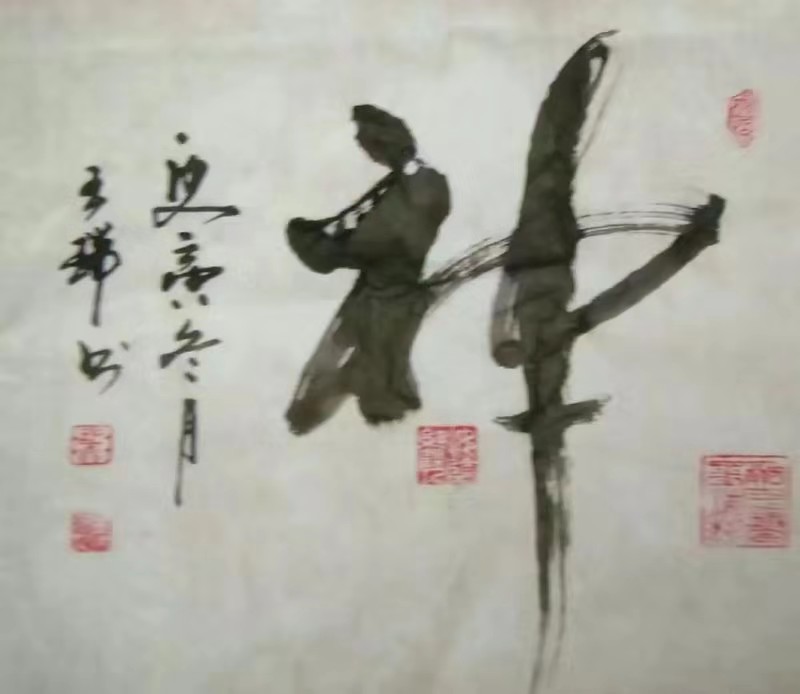 神
庚寅冬月
王瑞书